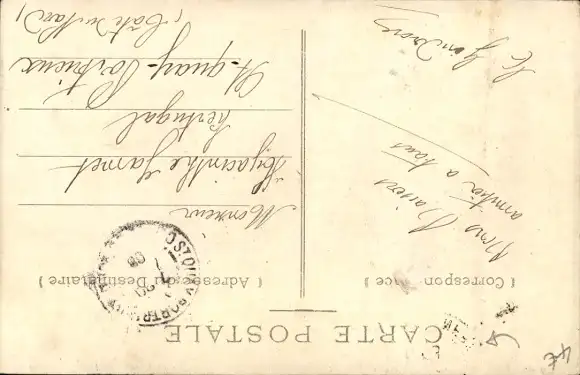 CARTE POSTALE
( Correspondance )
( Adresse du Destinataire )
Monsieur
Hyacinthe Jamet
Portugal
St-quay-Portrieux
(Côte du Nord)
Bons Baisers
amitié a tous
4€